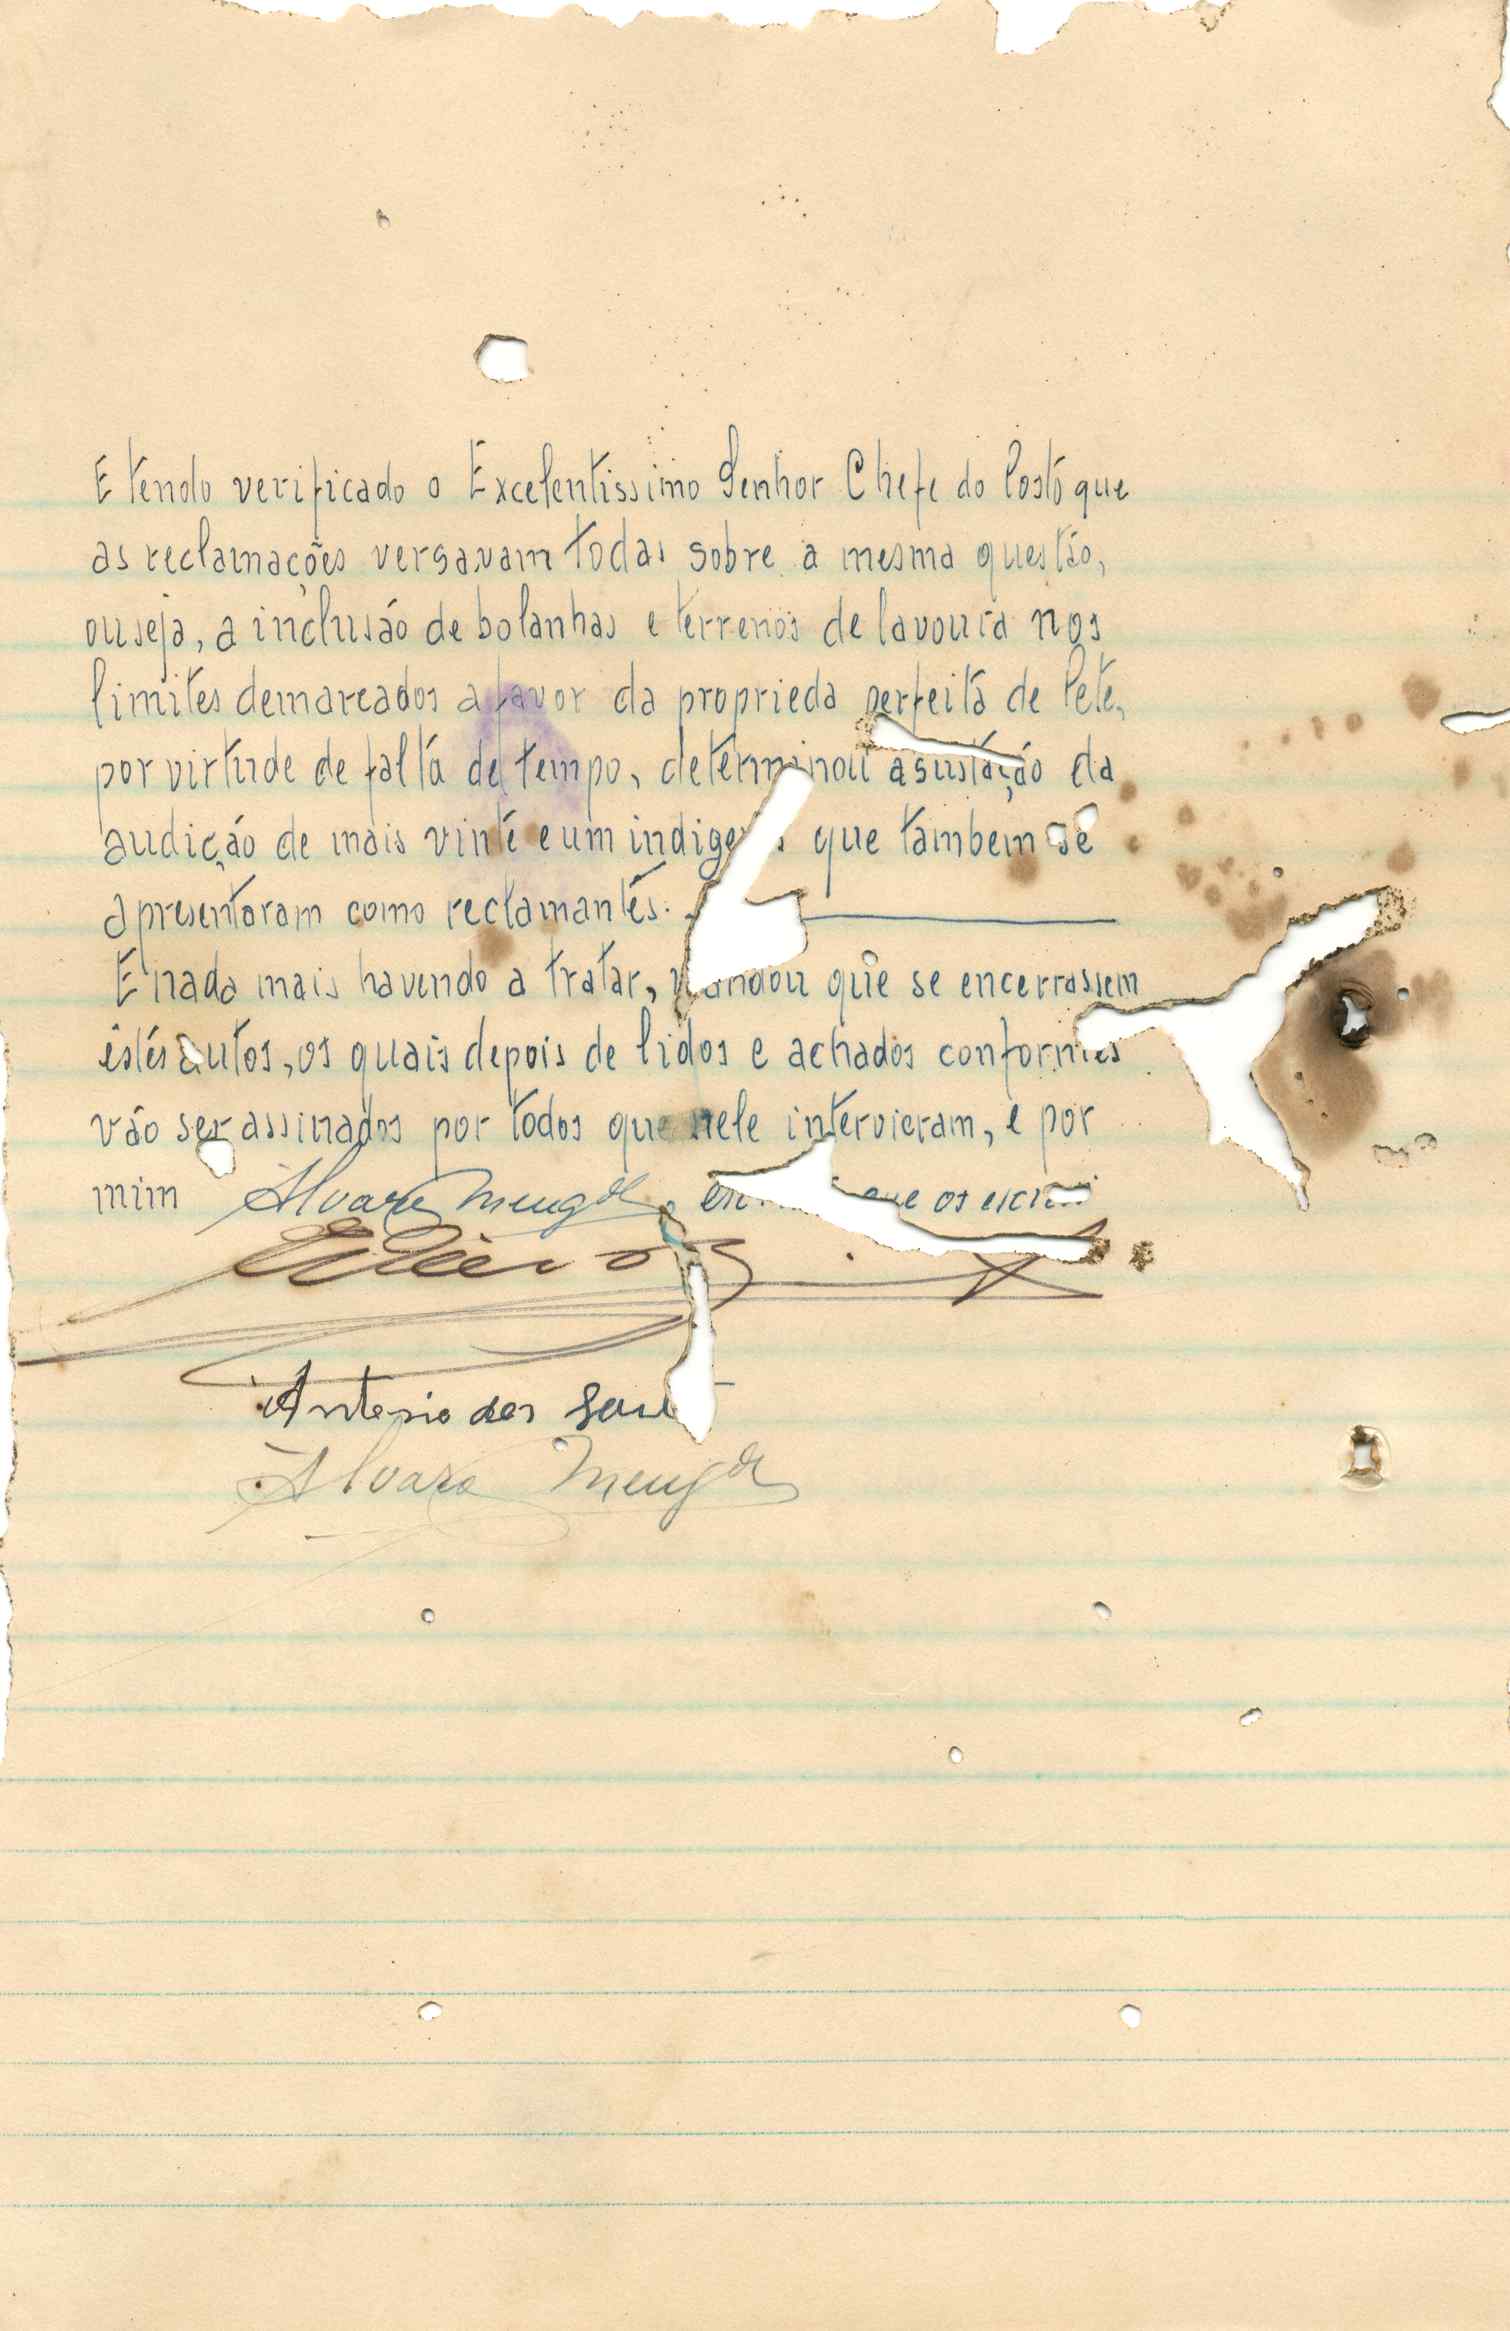 E tendo verificado o Excelentissimo Senhor Chefe do Posto que
as reclamações versavam todas sobre a mesma questão,
ou seja, a inclusão de bolanhas e terrenos de lavoura nos
limites demarcados a favor da proprieda perfeita de Pete,
por virtude de falta de tempo, determinou a sustação da
audição de mais vinte e um indigenas que tambem se
apresentaram como reclamantes.
E nada mais havendo a tratar, mandou que se encerrassem
êstes autos, os quais depois de lidos e achados conformes
vão ser assinados por todos que nele intervieram, e por
mim Alvaro que os escrevi
Antonio dos
Alvaro